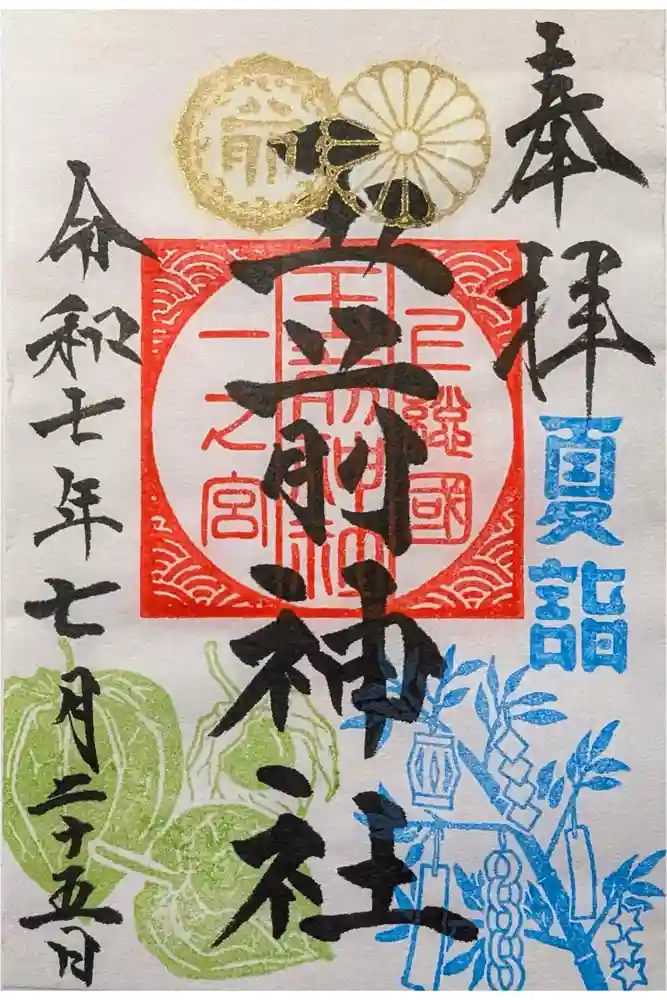 奉拝
夏詣
玉前神社
上総國
玉前神社
一之宮
前
令和七年七月二十五日